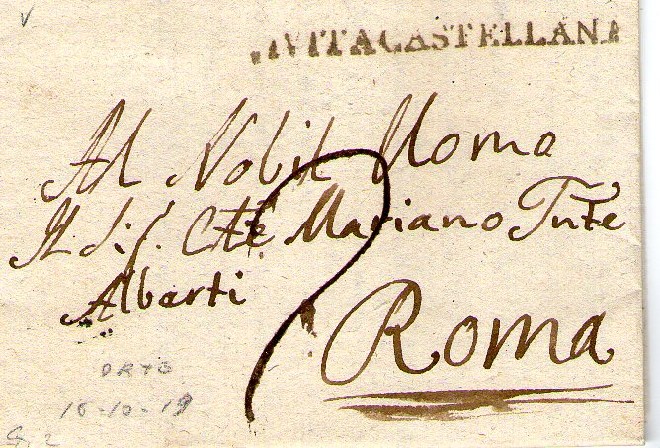 IVITACASTELLANA
Al Nobil Uomo
Il Sig. Cte Mariano Tnte
Alberti
Roma
ORTO
16-10-19